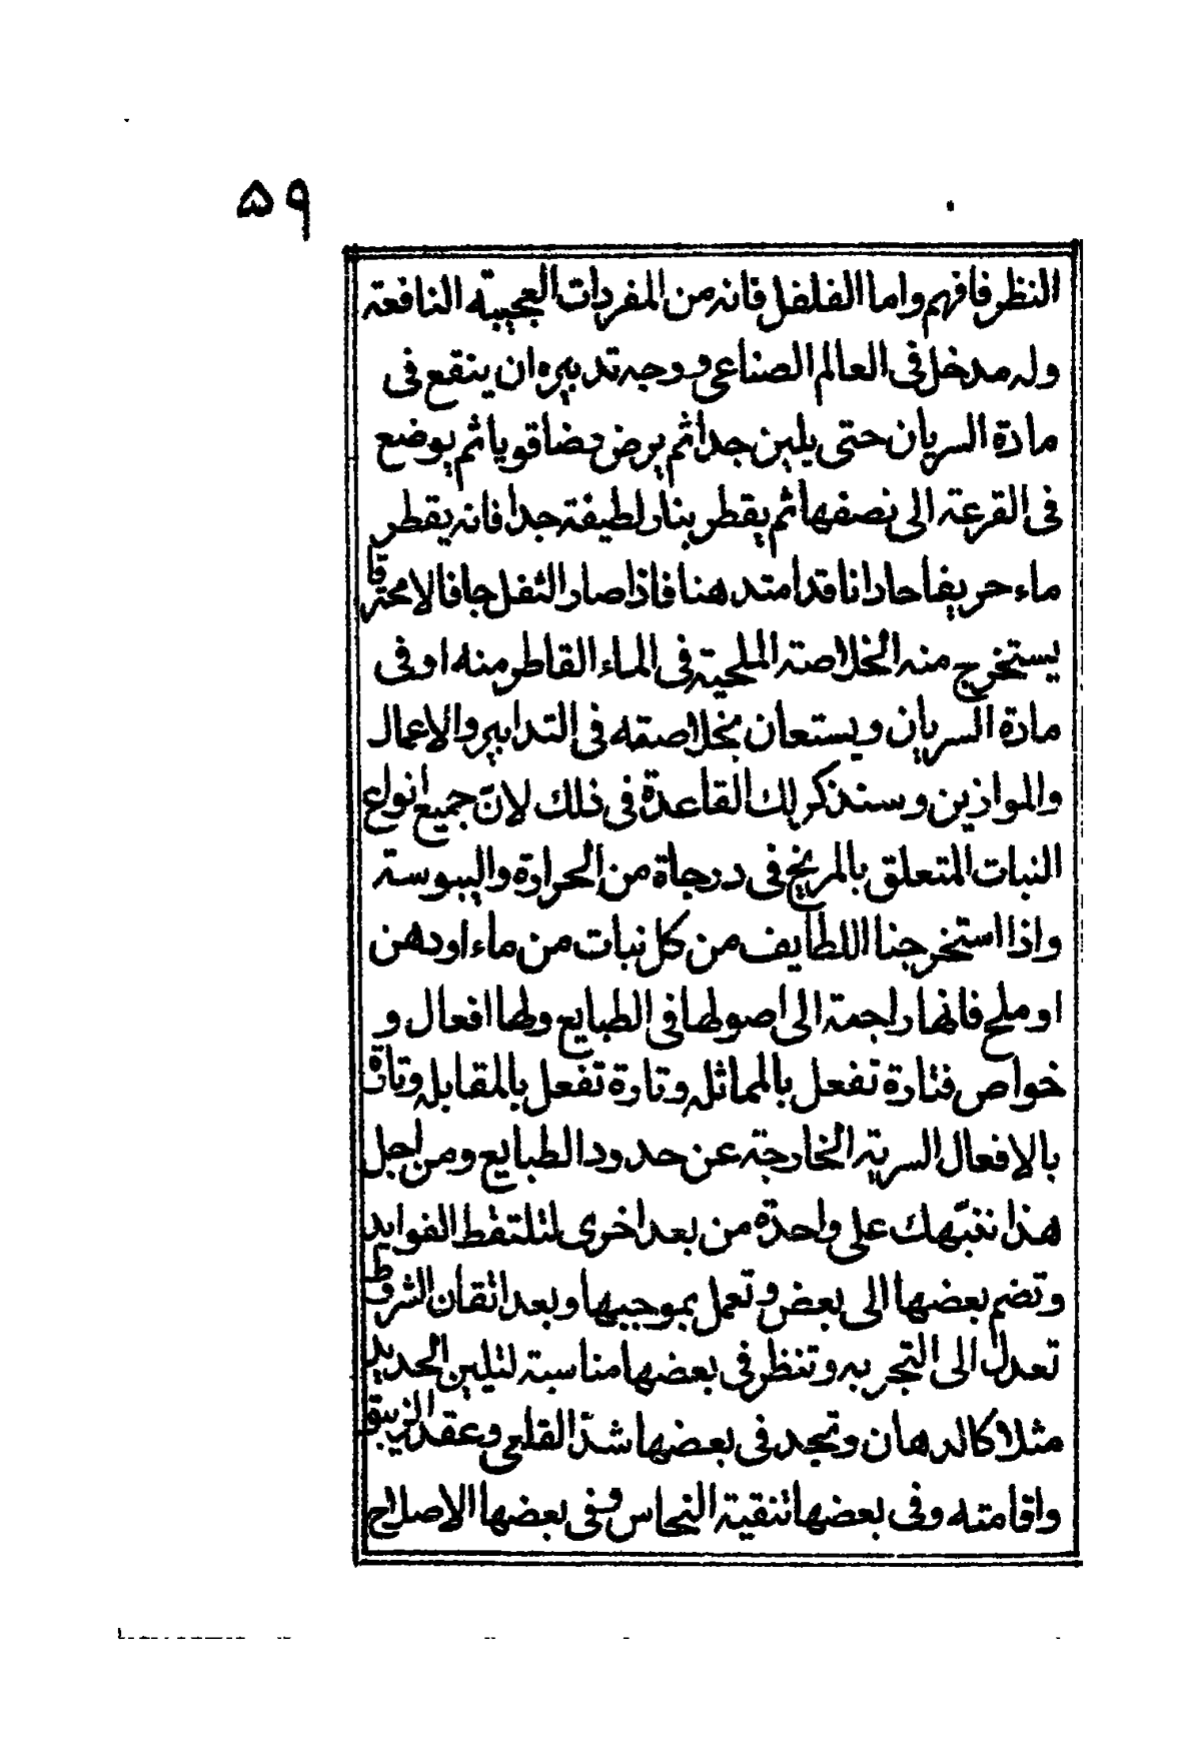 ۵۹
النظر فافهم واما الفلفل فانه من المفردات العجيبة النافعة
وله مدخل فى العالم الصناعى ووجه تدبيره ان ينقع فى
مادة السريان حتى يلين جدا ثم يرض رضا قويا ثم يوضع
فى القرعة الى نصفها ثم يقطر بنار لطيفة جدا فانه يقطر
ماء حريفا حادا نا قد امتد هنا فاذا صار الثفل جافا لا محترقا
يستخرج منه الخلاصة الملحية فى الماء القاطر منه او فى
مادة السريان ويستعان بخلاصته فى التدابير والاعمال
والموازين وسنذكر لك القاعدة فى ذلك لانّ جميع انواع
النبات المتعلق بالمريخ فى درجاة من الحرارة واليبوسة
واذا استخرجنا اللطايف من كل نبات من ماء او دهن
او ملح فانها راجعة الى اصولها فى الطبايع ولها افعال و
خواص فتارة تفعل بالمماثله وتارة تفعل بالمقابله وتارة
بالافعال السرية الخارجة عن حدود الطبايع ومن اجل
هذا ننبّهك على واحدة من بعد اخرى لتلتقط الفوايد
وتضم بعضها الى بعض وتعمل بموجبها وبعد اتقان الشرط
تعدل الى التجربه وتنظر فى بعضها مناسبة لتليين الحديد
مثلا كالدهان وتجد فى بعضها شدّ القلعى وعقد الزيبق
واقامته وفى بعضها تنقية النحاس وفى بعضها الاصلاح